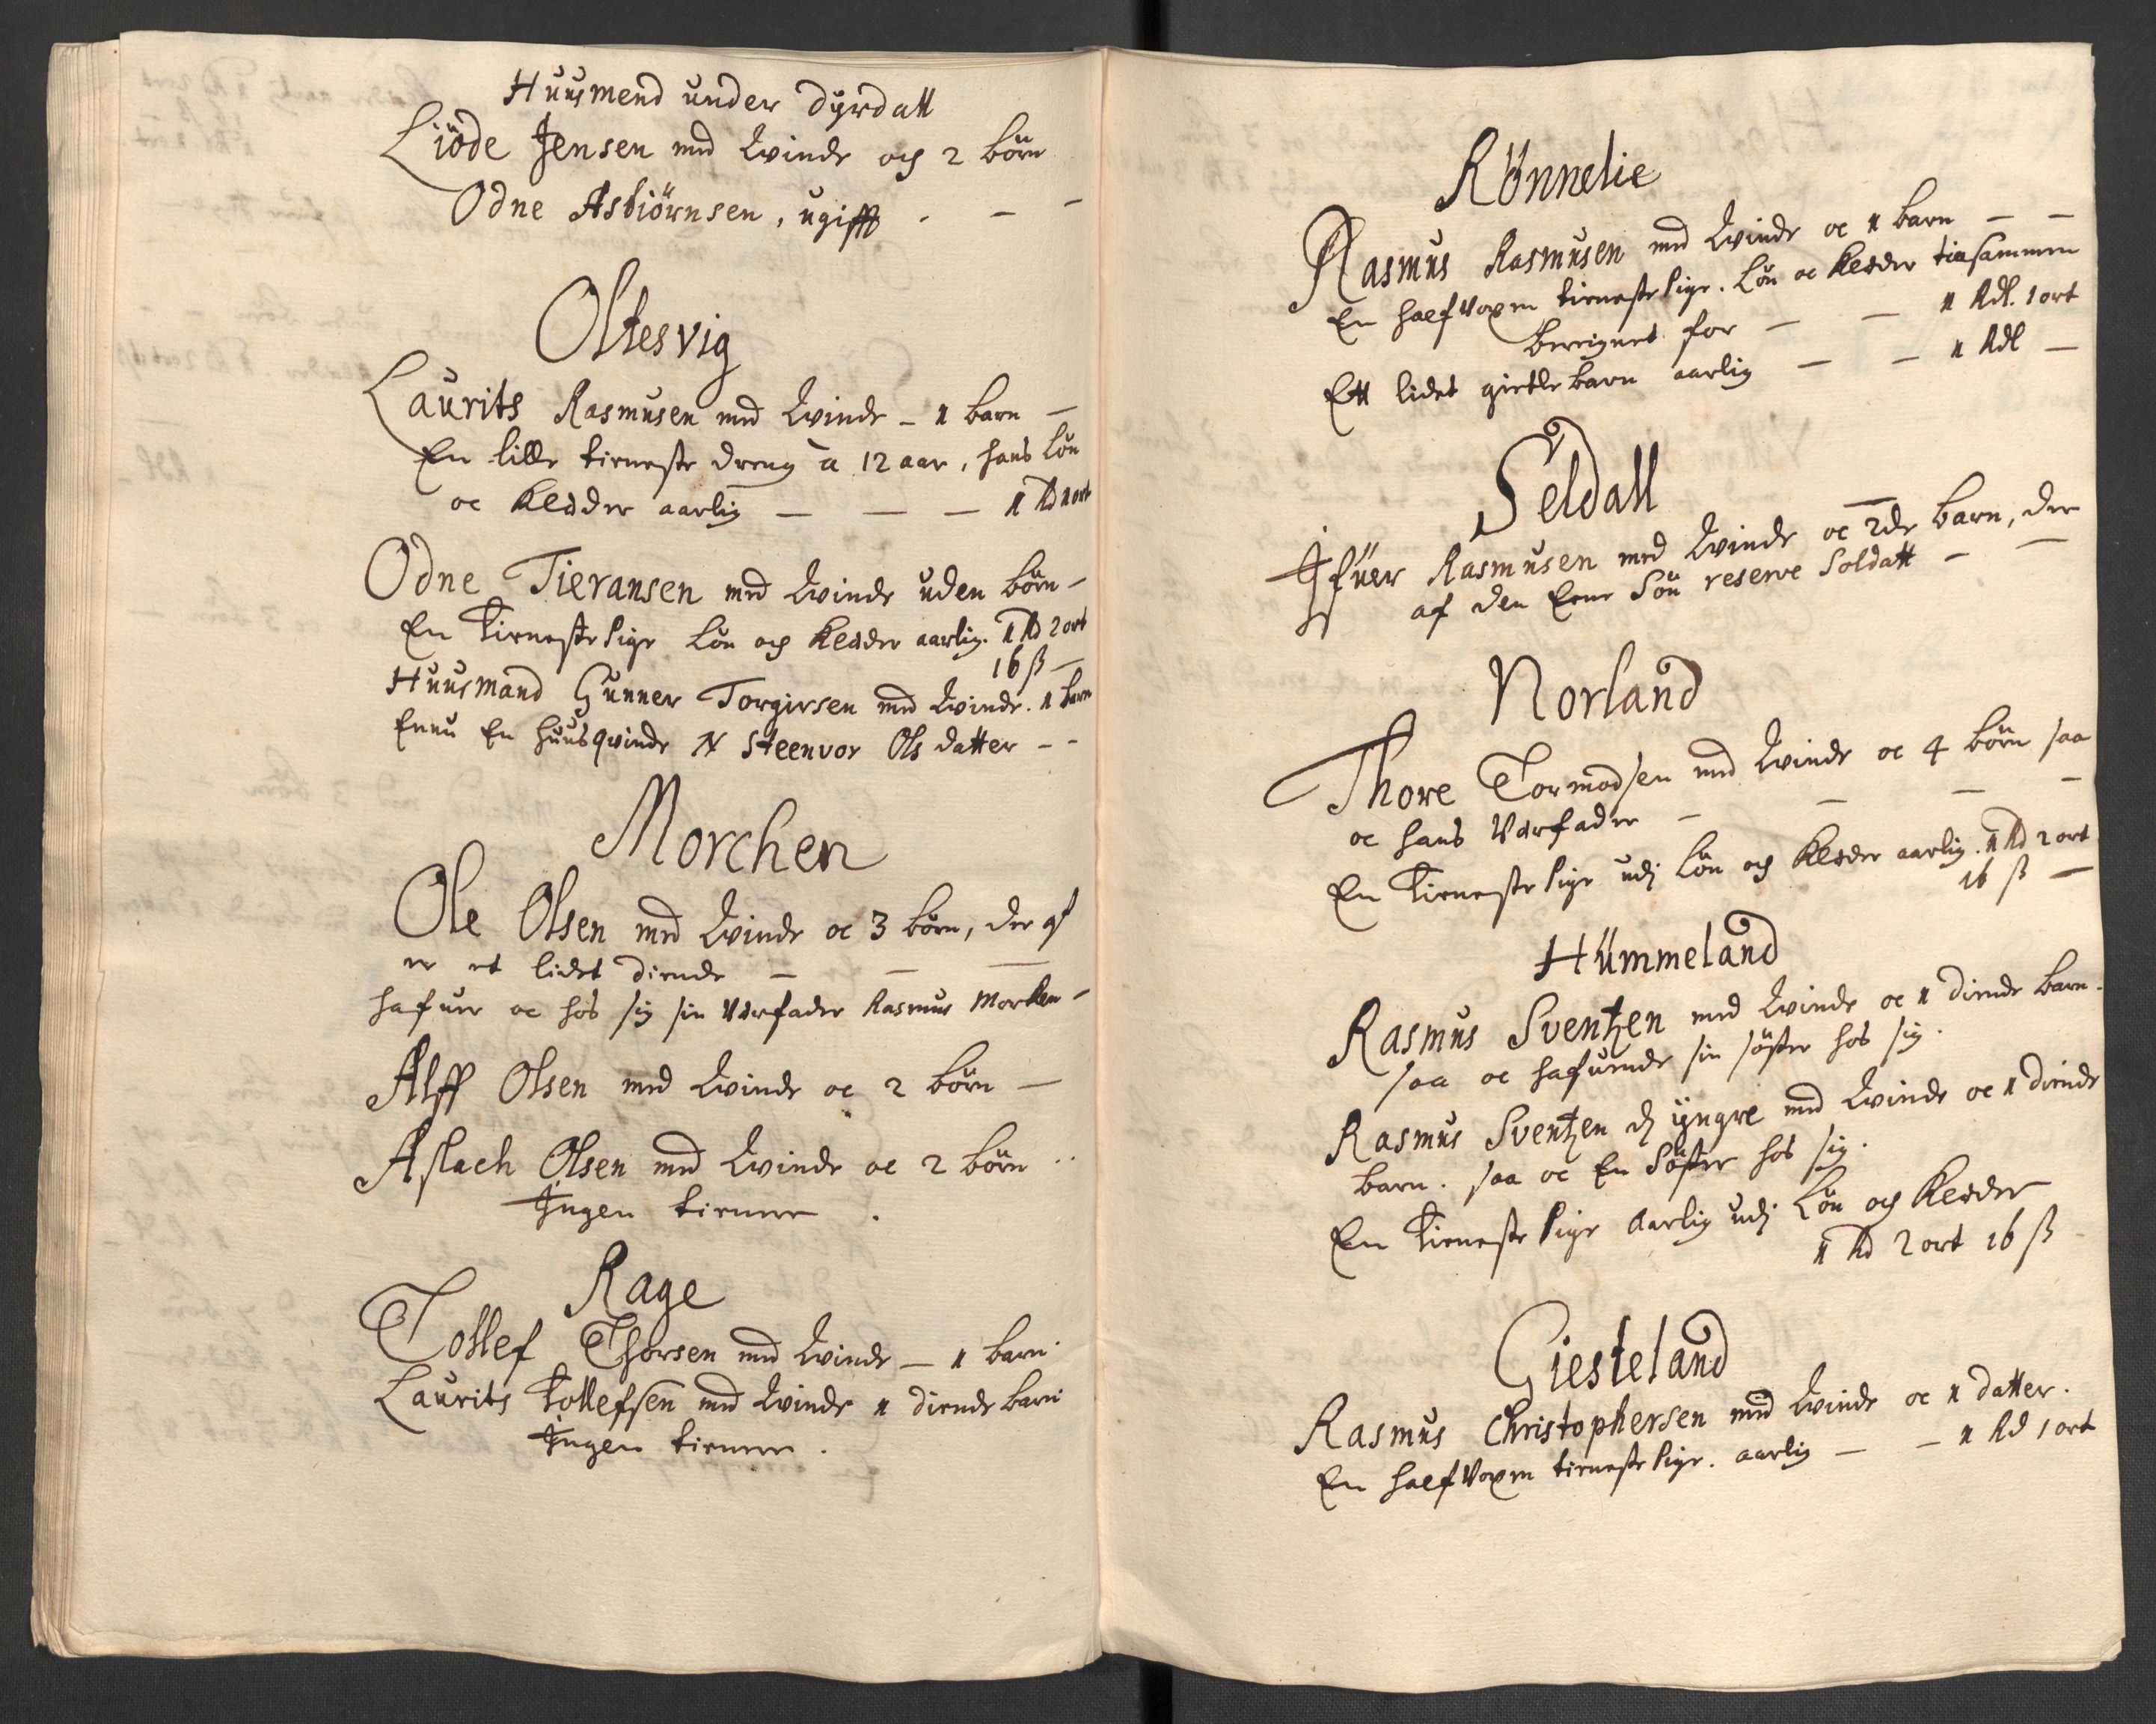 Huusmend under Dyrdall
Liöde Jensen med Kvinde och 2 börn
Odne Asbiörnsen, ugifft - - -
Oltesvig
Laurits Rasmusen med Kvinde - 1 barn -
En lille tieneste dreng a 12 aar, hans Lön
oc Kleder aarlig - - - 1 Rd 1 ort
Odne Tieransen med Kvinde uden börn -
En Tieneste Pige Lön och Kleder aarlig. 1 Rd 2 ort
16 ß -
Huusmand Gunner Torgirsen med Kvinde. 1 barn
Ennu En huusqvinde N Steenvor Olsdatter - -
Morchen
Ole Olsen med Kvinde oc 3 börn, der af
er et lidet diende - - -
hafuer oc hos sig sin Værfader Rasmus Morken -
Alff Olsen med Kvinde oc 2 börn -
Aslach Olsen med Kvinde oc 2 börn ..
Ingen tienner.
Rage
Tollef Thorsen med Kvinde - 1 barn.
Laurits Tollefsen med Kvinde 1 diende barn
Ingen tienner.
Rönnelie
Rasmus Rasmusen med Kvinde oc 1 barn - -
En half voxen tieneste Pige. Lön oc Kleder tilsammen
bereignet for - - 1 Rdl. 1 ort
Ett lidet gietlebarn aarlig - - 1 Rdl -
Seldall
Ifuer Rasmusen med Kvinde oc 2de barn, der
af den Eene Sön reserve Soldatt - -
Norland
Thore Tormodsen med Kvinde oc 4 börn saa
oc hans Værfader - - - -
En Tieneste Pige udj Lön och Kleder aarlig. 1 Rd 2 ort
16 ß -
Hummeland
Rasmus Sventzen med Kvinde oc 1 diende barn.
saa oc hafuende sin söster hos sig.
Rasmus Sventzen dj yngre med Kvinde oc 1 diende
barn. saa oc En Söster hos sig.
En Tieneste Pige Aarlig udj Lön och Kleder
1 Rd 2 ort 16 ß
Giesteland
Rasmus Christophersen med Kvinde oc 1 datter.
En half voxen tieneste Pige. aarlig - - 1 Rd 1 ort